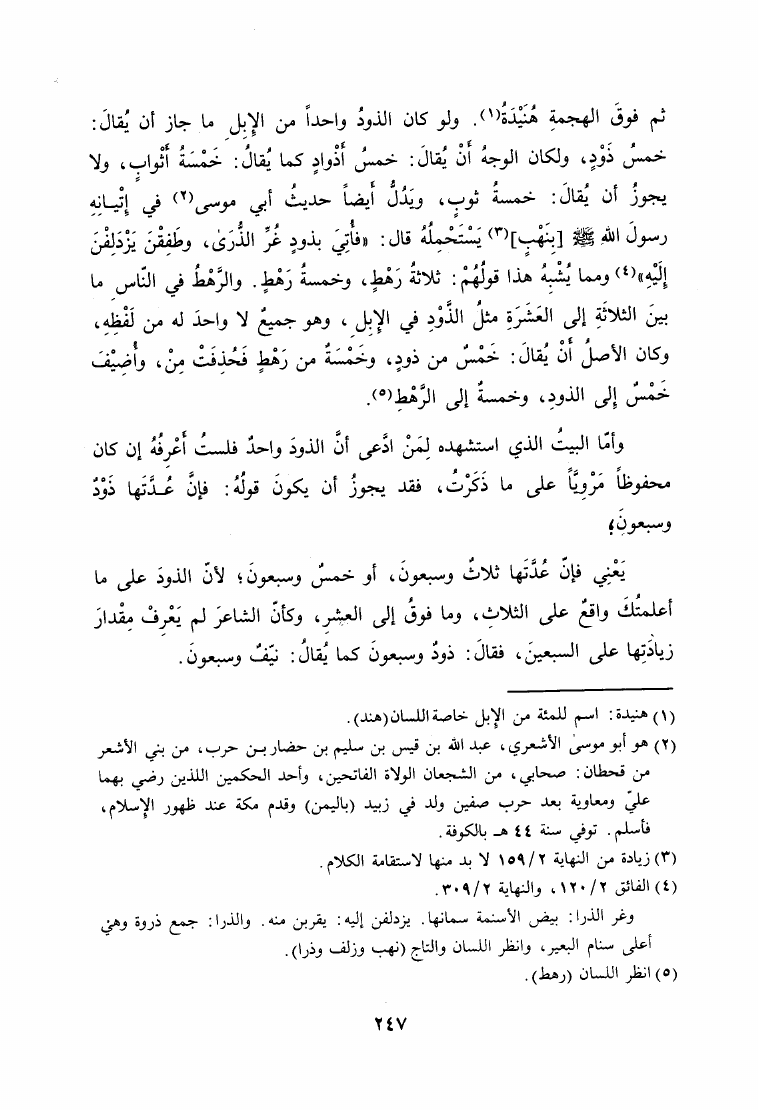 ثم فوقَ الهجمةِ هُنَيْدَةُ(١). ولو كان الذودُ واحداً من الإِبلِ ما جاز أن يُقالَ:
خمسُ ذَوْدٍ، ولكان الوجهُ أَنْ يُقالَ: خمسُ أَذْوادٍ كما يُقالُ: خَمْسَةُ أَثْوابٍ، ولا
يجوزُ أن يُقالَ: خمسةُ ثوبٍ، ويَدُلُّ أيضاً حديثُ أبي موسى(٢) في إِتْيـانِهِ
رسولَ الله ﷺ [بِنَهْبٍ](٣) يَسْتَحْمِلُهُ قال: «فأُتِيَ بذودٍ غُرِّ الذُّرَىٰ، وطَفِقْنَ يَزْدَلِفْنَ
إِلَيْهِ»(٤) ومما يُشْبِهُ هذا قولُهُمْ: ثلاثةُ رَهْطٍ، وخمسةُ رَهْطٍ. والرَّهْطُ في النّاسِ ما
بينَ الثلاثَةِ إلى العَشَرَةِ مثلُ الذَّوْدِ في الإِبلِ، وهو جميعٌ لا واحدَ له من لَفْظِهِ،
وكان الأصلُ أَنْ يُقالَ: خَمْسٌ من ذودٍ، وخَمْسَةٌ من رَهْطٍ فَحُذِفَتْ مِنْ، وأُضِيْفَ
خَمْسٌ إلى الذودِ، وخمسةٌ إلى الرَّهْطِ(٥).
وأمّا البيتُ الذي استشهده لِمَنْ ادَّعى أنَّ الذودَ واحدٌ فلستُ أَعْرِفُهُ إن كان
محفوظاً مَرْوِيَّاً على ما ذَكَرْتُ، فقد يجوزُ أن يكونَ قولُهُ: فإِنَّ عُـدَّتَها ذَوْدٌ
وسبعونَ؛
يَعْنِي فإنّ عُدَّتَها ثلاثٌ وسبعونَ، أو خمسٌ وسبعونَ؛ لأنّ الذودَ على ما
أعلمتُكَ واقعٌ على الثلاثِ، وما فوقُ إلى العشرِ، وكأنّ الشاعرَ لم يَعْرِفْ مِقْدارَ
زيادَتِها على السبعينَ، فقالَ: ذودٌ وسبعونَ كما يُقالُ: نيّفٌ وسبعونَ.
(١) هنيدة: اسم للمئة من الإبل خاصة اللسان (هند).
(٢) هو أبو موسىٰ الأشعري، عبد الله بن قيس بن سليم بن حضار بـن حرب، من بني الأشعر
من قحطان: صحابي، من الشجعان الولاة الفاتحين، وأحد الحكمين اللذين رضي بهما
عليّ ومعاوية بعد حرب صفين ولد في زبيد (باليمن) وقدم مكة عند ظهور الإِسلام،
فأسلم. توفي سنة ٤٤ هـ بالكوفة.
(٣) زيادة من النهاية ١٥٩/٢ لا بد منها لاستقامة الكلام.
(٤) الفائق ١٢٠/٢، والنهاية ٣٠٩/٢.
وغر الذرا: بيض الأسنمة سمانها. يزدلفن إليه: يقربن منه. والذرا: جمع ذروة وهي
أعلى سنام البعير، وانظر اللسان والتاج (نهب وزلف وذرا).
(٥) انظر اللسان (رهط).
٢٤٧